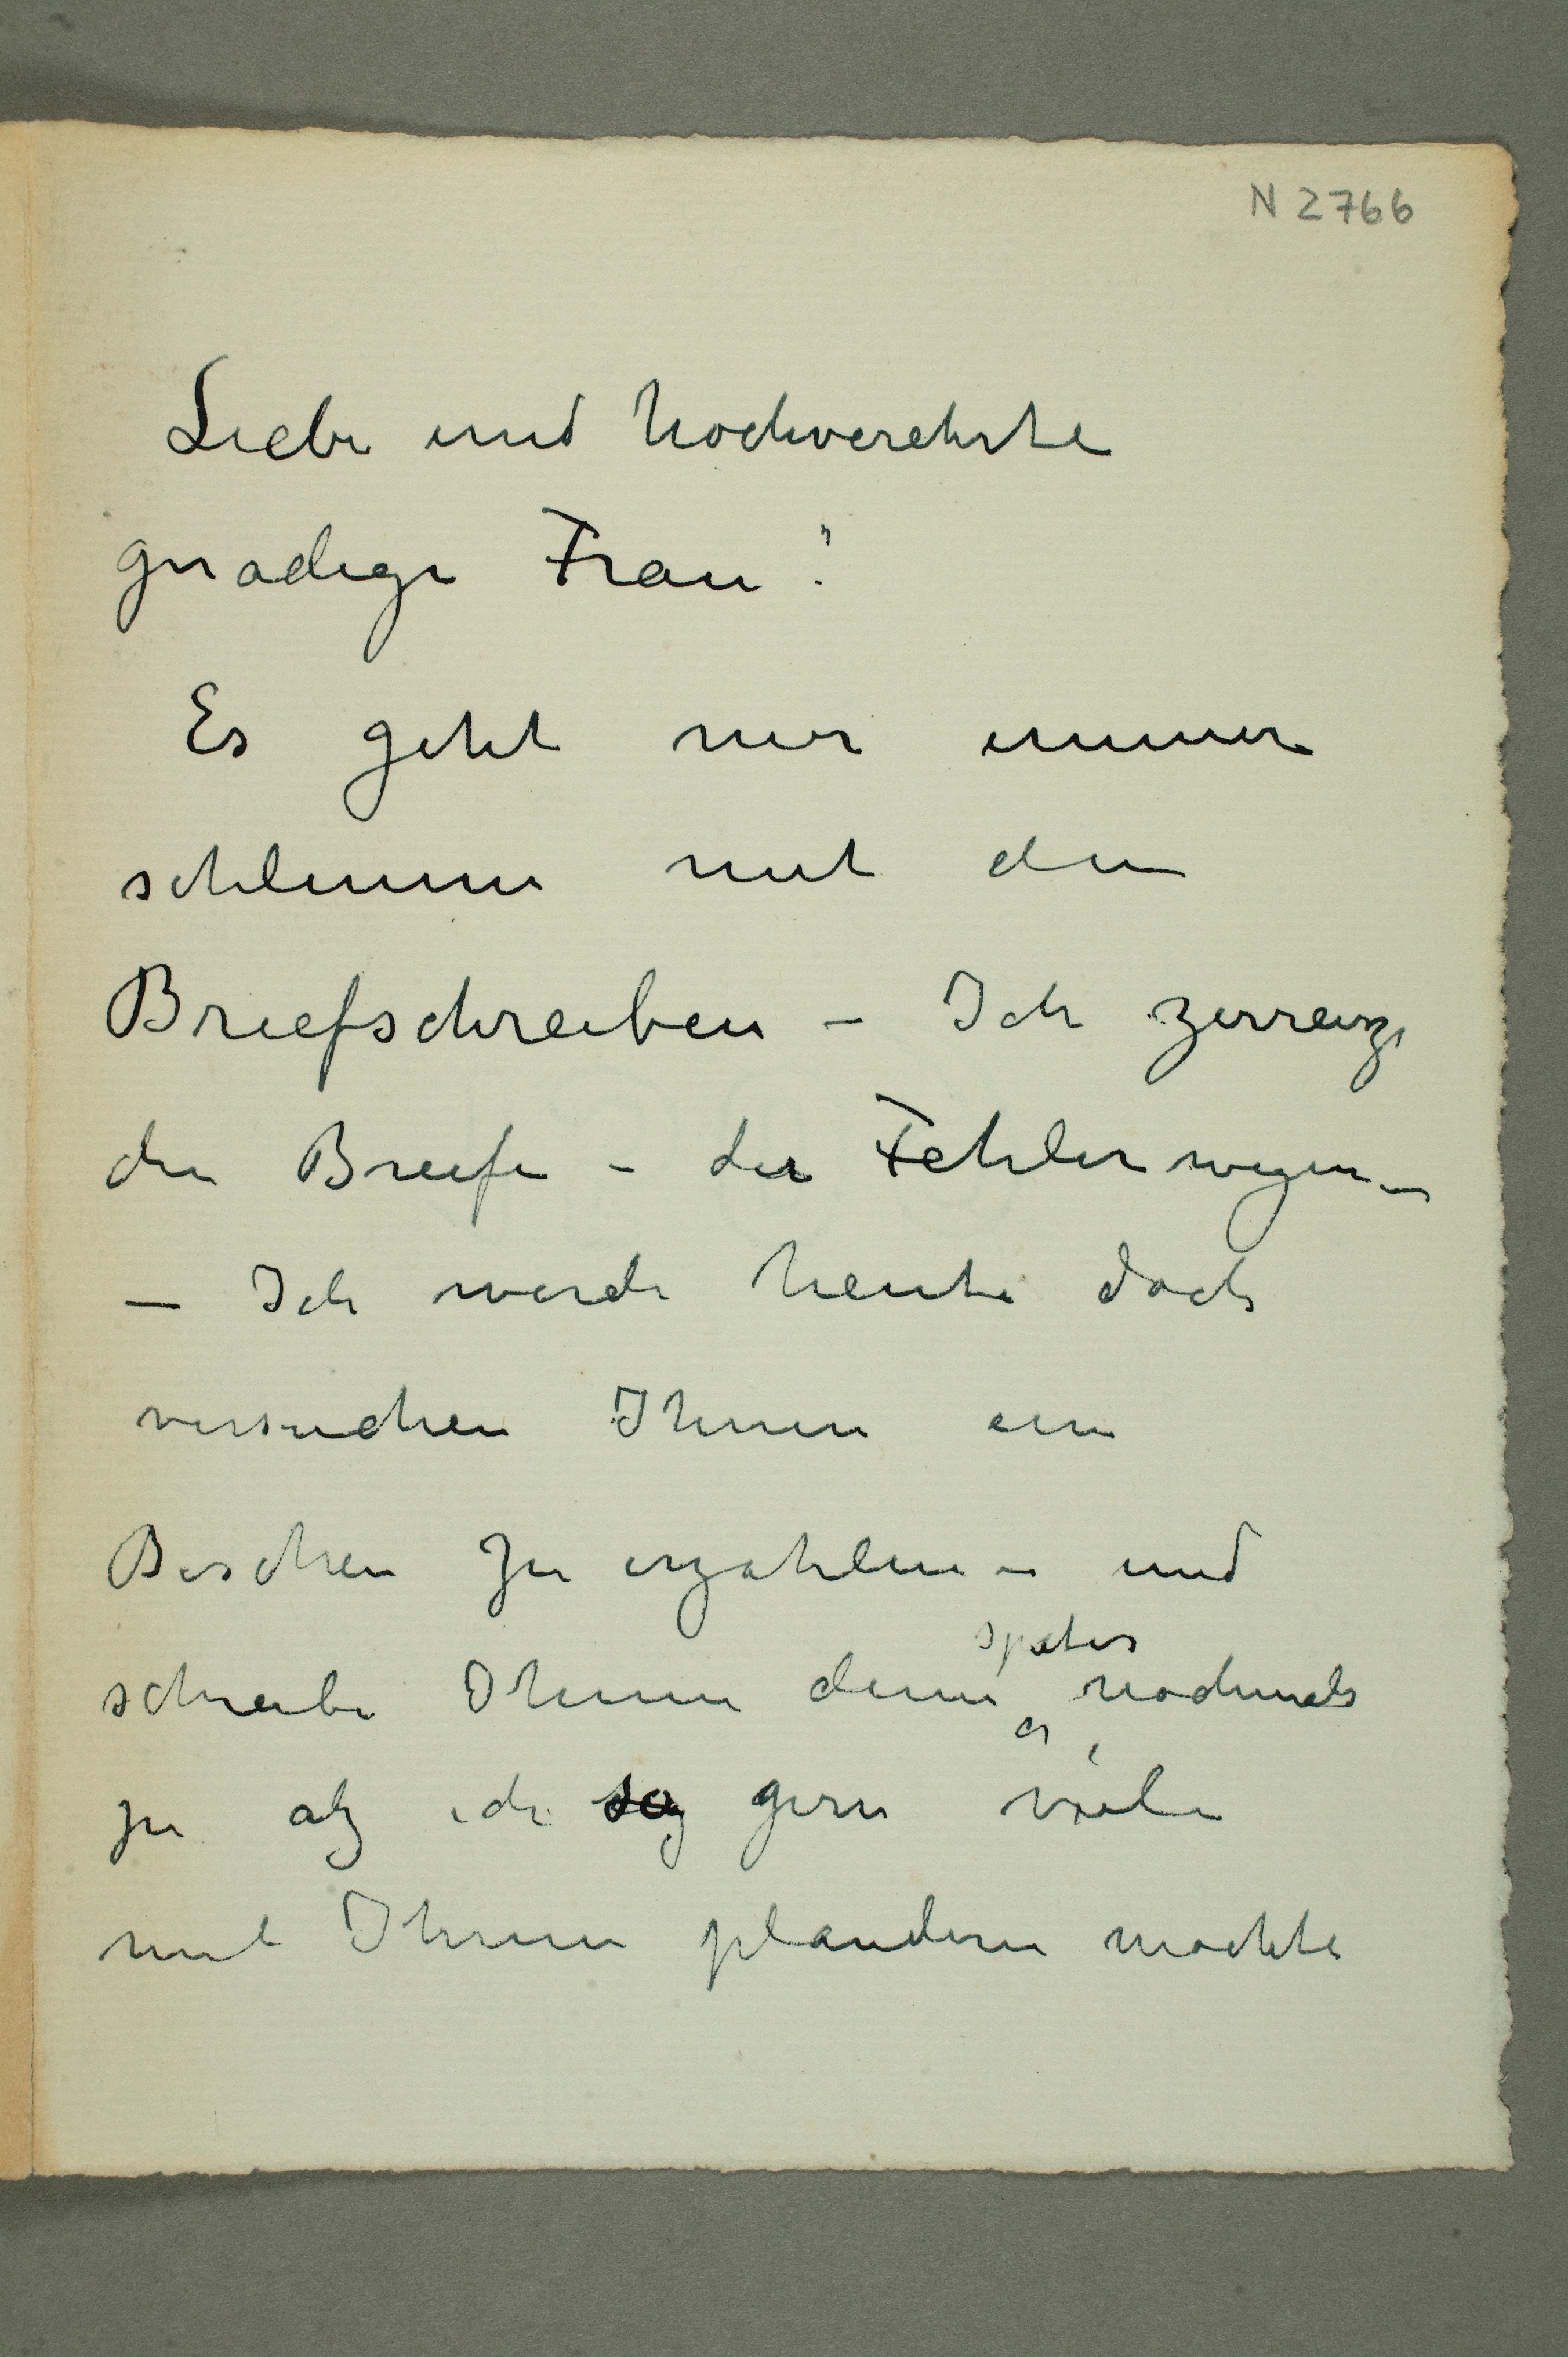 N 2766
Liebe und hochverehrte
gnadige Frau!
Es geht mir immer
schlimm mit dem
Briefschreiben – Ich zerreize
die Briefe – der Fehler wegen –
– Ich werde heute doch
versuchen Ihnen ein
Bischen zu erzahlen – und
später
schreibe Ihnen denn nochmals
ja als ich gern viele
mit Ihnen plaudern mochte